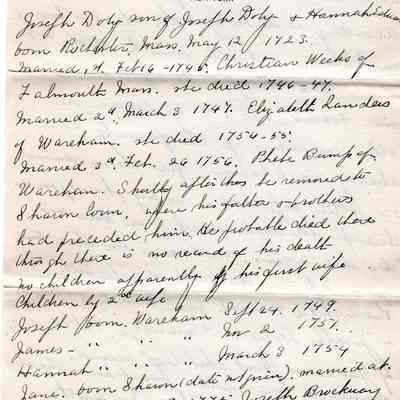 Joseph Doty son of Joseph Doty & Hannah Edwards
born Rochester, Mass. May 12 1723.
Married 1st. Feb 16 - 1746. Christian Weeks of
Falmouth Mass. she died 1746-47.
Married 2d. March 3 1747. Elizabeth Landers
of Wareham. she died 1754-55.
Married 3d. Feb. 26 1756. Phebe Bump of
Wareham. Shortly after this he removed to
Sharon Conn, where his father & brothers
had preceded him. He probable died there
through there is no record of his death
no children apparently by his first wife
Children by 2nd wife
Joseph born, Wareham Sept 24. 1749.
James - " " " Nov 2 1751.
Hannah " " " March 3 1754
Jane. born Sharon (date not given). married at.
1775 Joseph Brockway